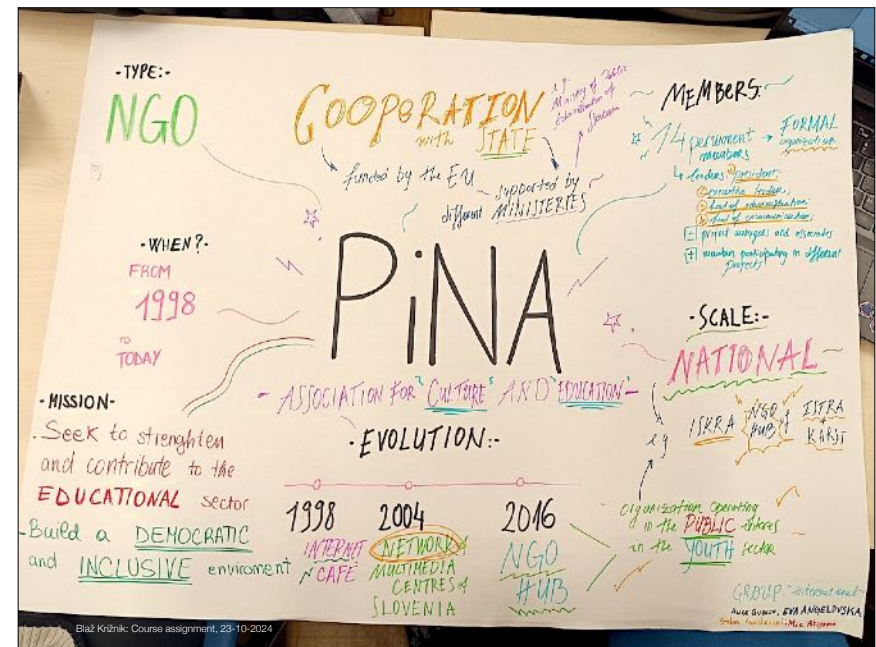 -TYPE:-
NGO
COOPERATION
with STATE
e.g.
Ministry of Public
Administration of
Slovenia
funded by the EU
supported by
different MINISTERIES
MEMBERS:
14 permanent
members
FORMAL
organization
leaders: president;
executive leader;
head of administration;
head of communication;
+ project managers and associates
+ members participating in different
projects
-WHEN?-
FROM
1998
TO
TODAY
PiNA
- ASSOCIATION FOR "CULTURE" AND "EDUCATION" -
-SCALE:-
NATIONAL
eg
ISKRA
NGO
HUB
of
ISTRA
+
KARST
organization operating
in the PUBLIC
in the YOUTH sector
-MISSION-
- Seek to strenghten
and contribute to the
EDUCATIONAL sector
- Build a DEMOCRATIC
and INCLUSIVE enviroment
-EVOLUTION:-
1998
INTERNET
CAFÉ
2004
NETWORK of
MULTIMEDIA
CENTRES of
SLOVENIA
2016
NGO
HUB
GROUP: "international"
EVA ANGELOVSKA
Blaž Križnik: Course assignment, 23-10-2024